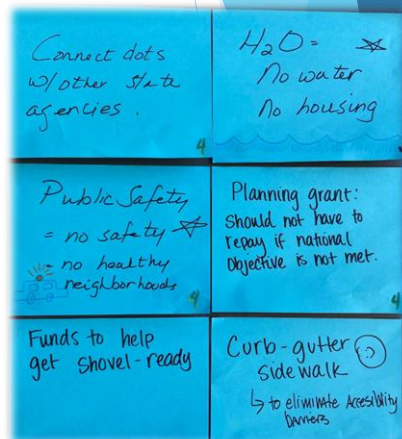 Connect dots
w/other State
agencies.
4
H2O =
No water
No housing
Public Safety
= no safety
= no healthy
neighborhoods
4
Planning grant:
Should not have to
repay if national
Objective is not met.
4
Funds to help
get shovel-ready
Curb-gutter
sidewalk
↳ to eliminate Accesiblity
barriers